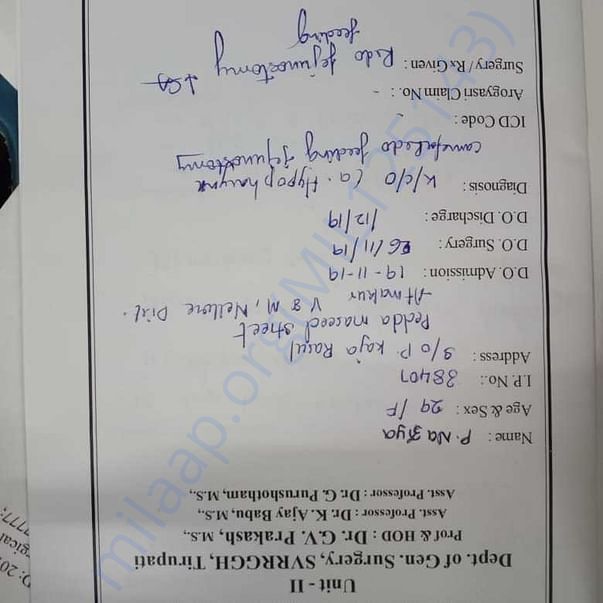 Unit - II
Dept. of Gen. Surgery, SVRRGGH, Tirupati
Prof & HOD : Dr. G.V. Prakash, M.S.,
Asst. Professor : Dr. K. Ajay Babu, M.S.,
Asst. Professor : Dr. G. Purushotham, M.S.,
Name : P. Naziya
Age & Sex : 29 / F
I.P. No.: 38401
Address : S/o P. Kaja Rasul
Pedda maseed street
Atmakur V & M, Nellore Dist.
D.O. Admission : 19-11-19
D.O. Surgery : 26/11/19
D.O. Discharge : /12/19
Diagnosis : K/c/o Ca. Hypopharynx
came for Redo feeding jejunostomy
ICD Code :
Arogyasri Claim No. : -
Surgery / Rx Given : Redo Jejunostomy
feeding
milaap.org(MIL125143)
D: 20
gical
77777;